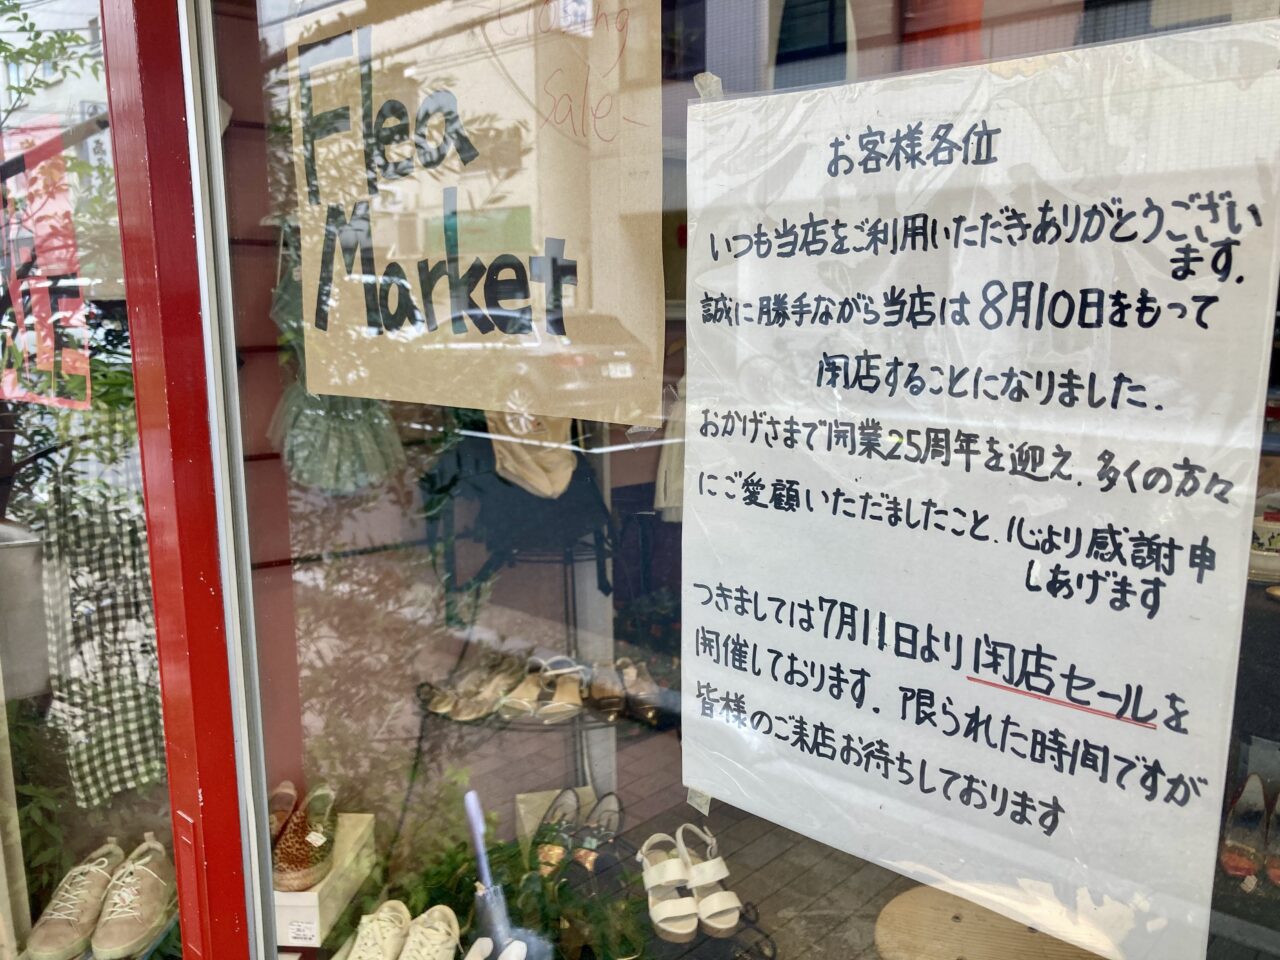 Closing
Sale
Flea
Market
お客様各位
いつも当店をご利用いただきありがとうござい
ます.
誠に勝手ながら当店は8月10日をもって
閉店することになりました.
おかげさまで開業25周年を迎え、多くの方々
にご愛顧いただましたこと、心より感謝申
しあげます
つきましては7月11日より閉店セールを
開催しております. 限られた時間ですが
皆様のご来店お待ちしております